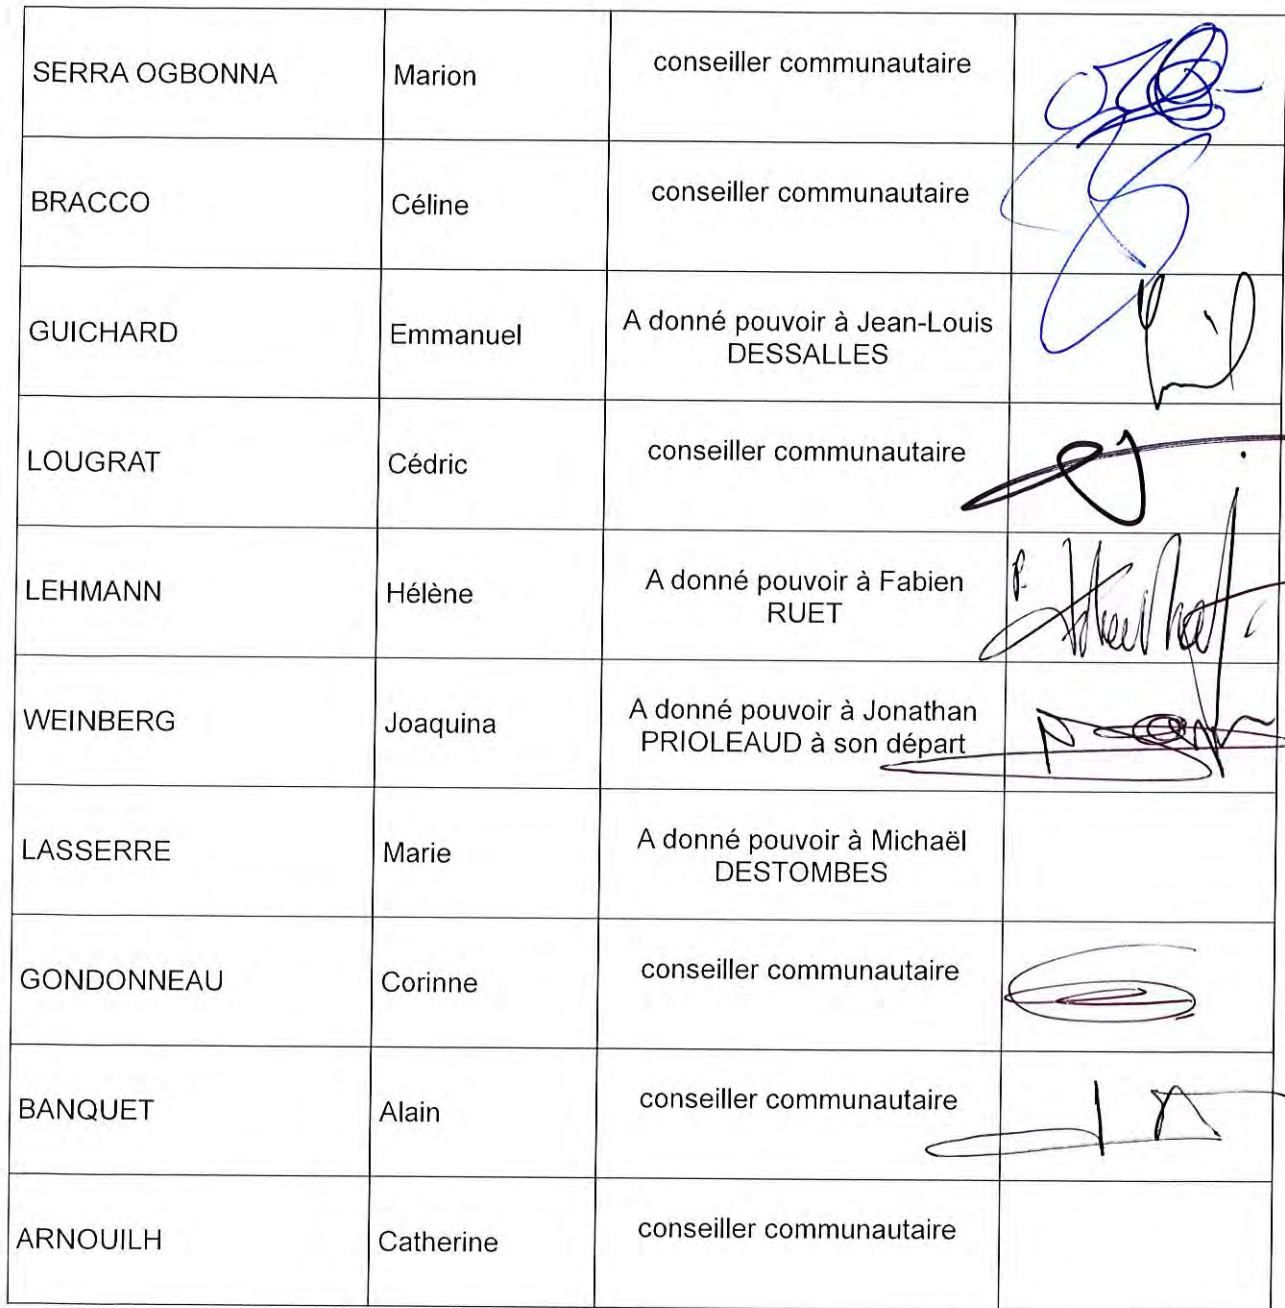 SERRA OGBONNA Marion conseiller communautaire
BRACCO Céline conseiller communautaire
GUICHARD Emmanuel A donné pouvoir à Jean-Louis
DESSALLES
LOUGRAT Cédric conseiller communautaire
LEHMANN Hélène A donné pouvoir à Fabien
RUET
WEINBERG Joaquina A donné pouvoir à Jonathan
PRIOLEAUD à son départ
LASSERRE Marie A donné pouvoir à Michaël
DESTOMBES
GONDONNEAU Corinne conseiller communautaire
BANQUET Alain conseiller communautaire
ARNOUILH Catherine conseiller communautaire